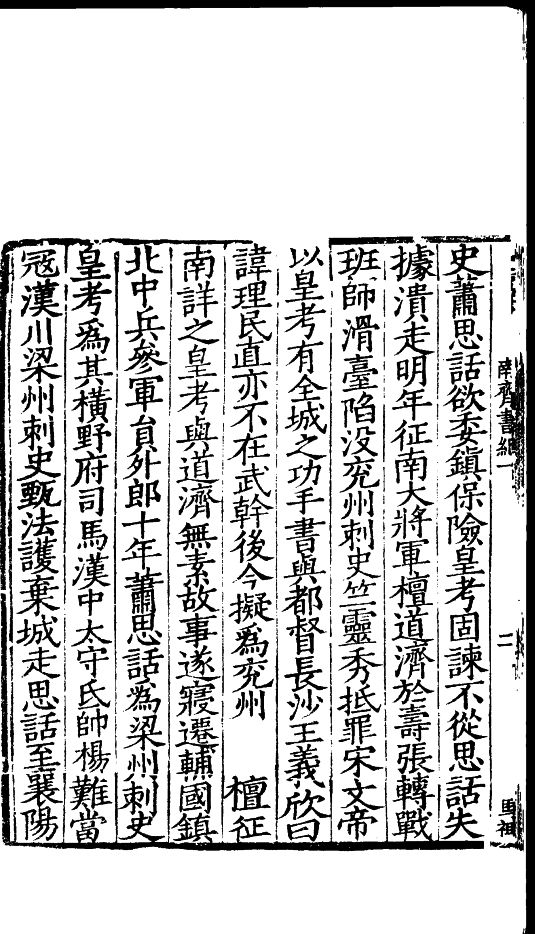 史蕭思話欲委鎮保險皇考固諫不從思話失
據潰走明年征南大將軍檀道濟於壽張轉戰
班師滑臺陷没兖州刺史竺靈秀抵罪宋文帝
以皇考有全城之功手書與都督長沙王義欣曰
諱理民直亦不在武幹後今擬爲兖州　檀征
南詳之皇考與道濟無素故事遂寢遷輔國鎮
北中兵參軍員外郎十年蕭思話爲梁州刺史
皇考爲其横野府司馬漢中太守氐帥楊難當
冦漢川梁州刺史甄法護棄城走思話至襄陽
南齊書紀一
二